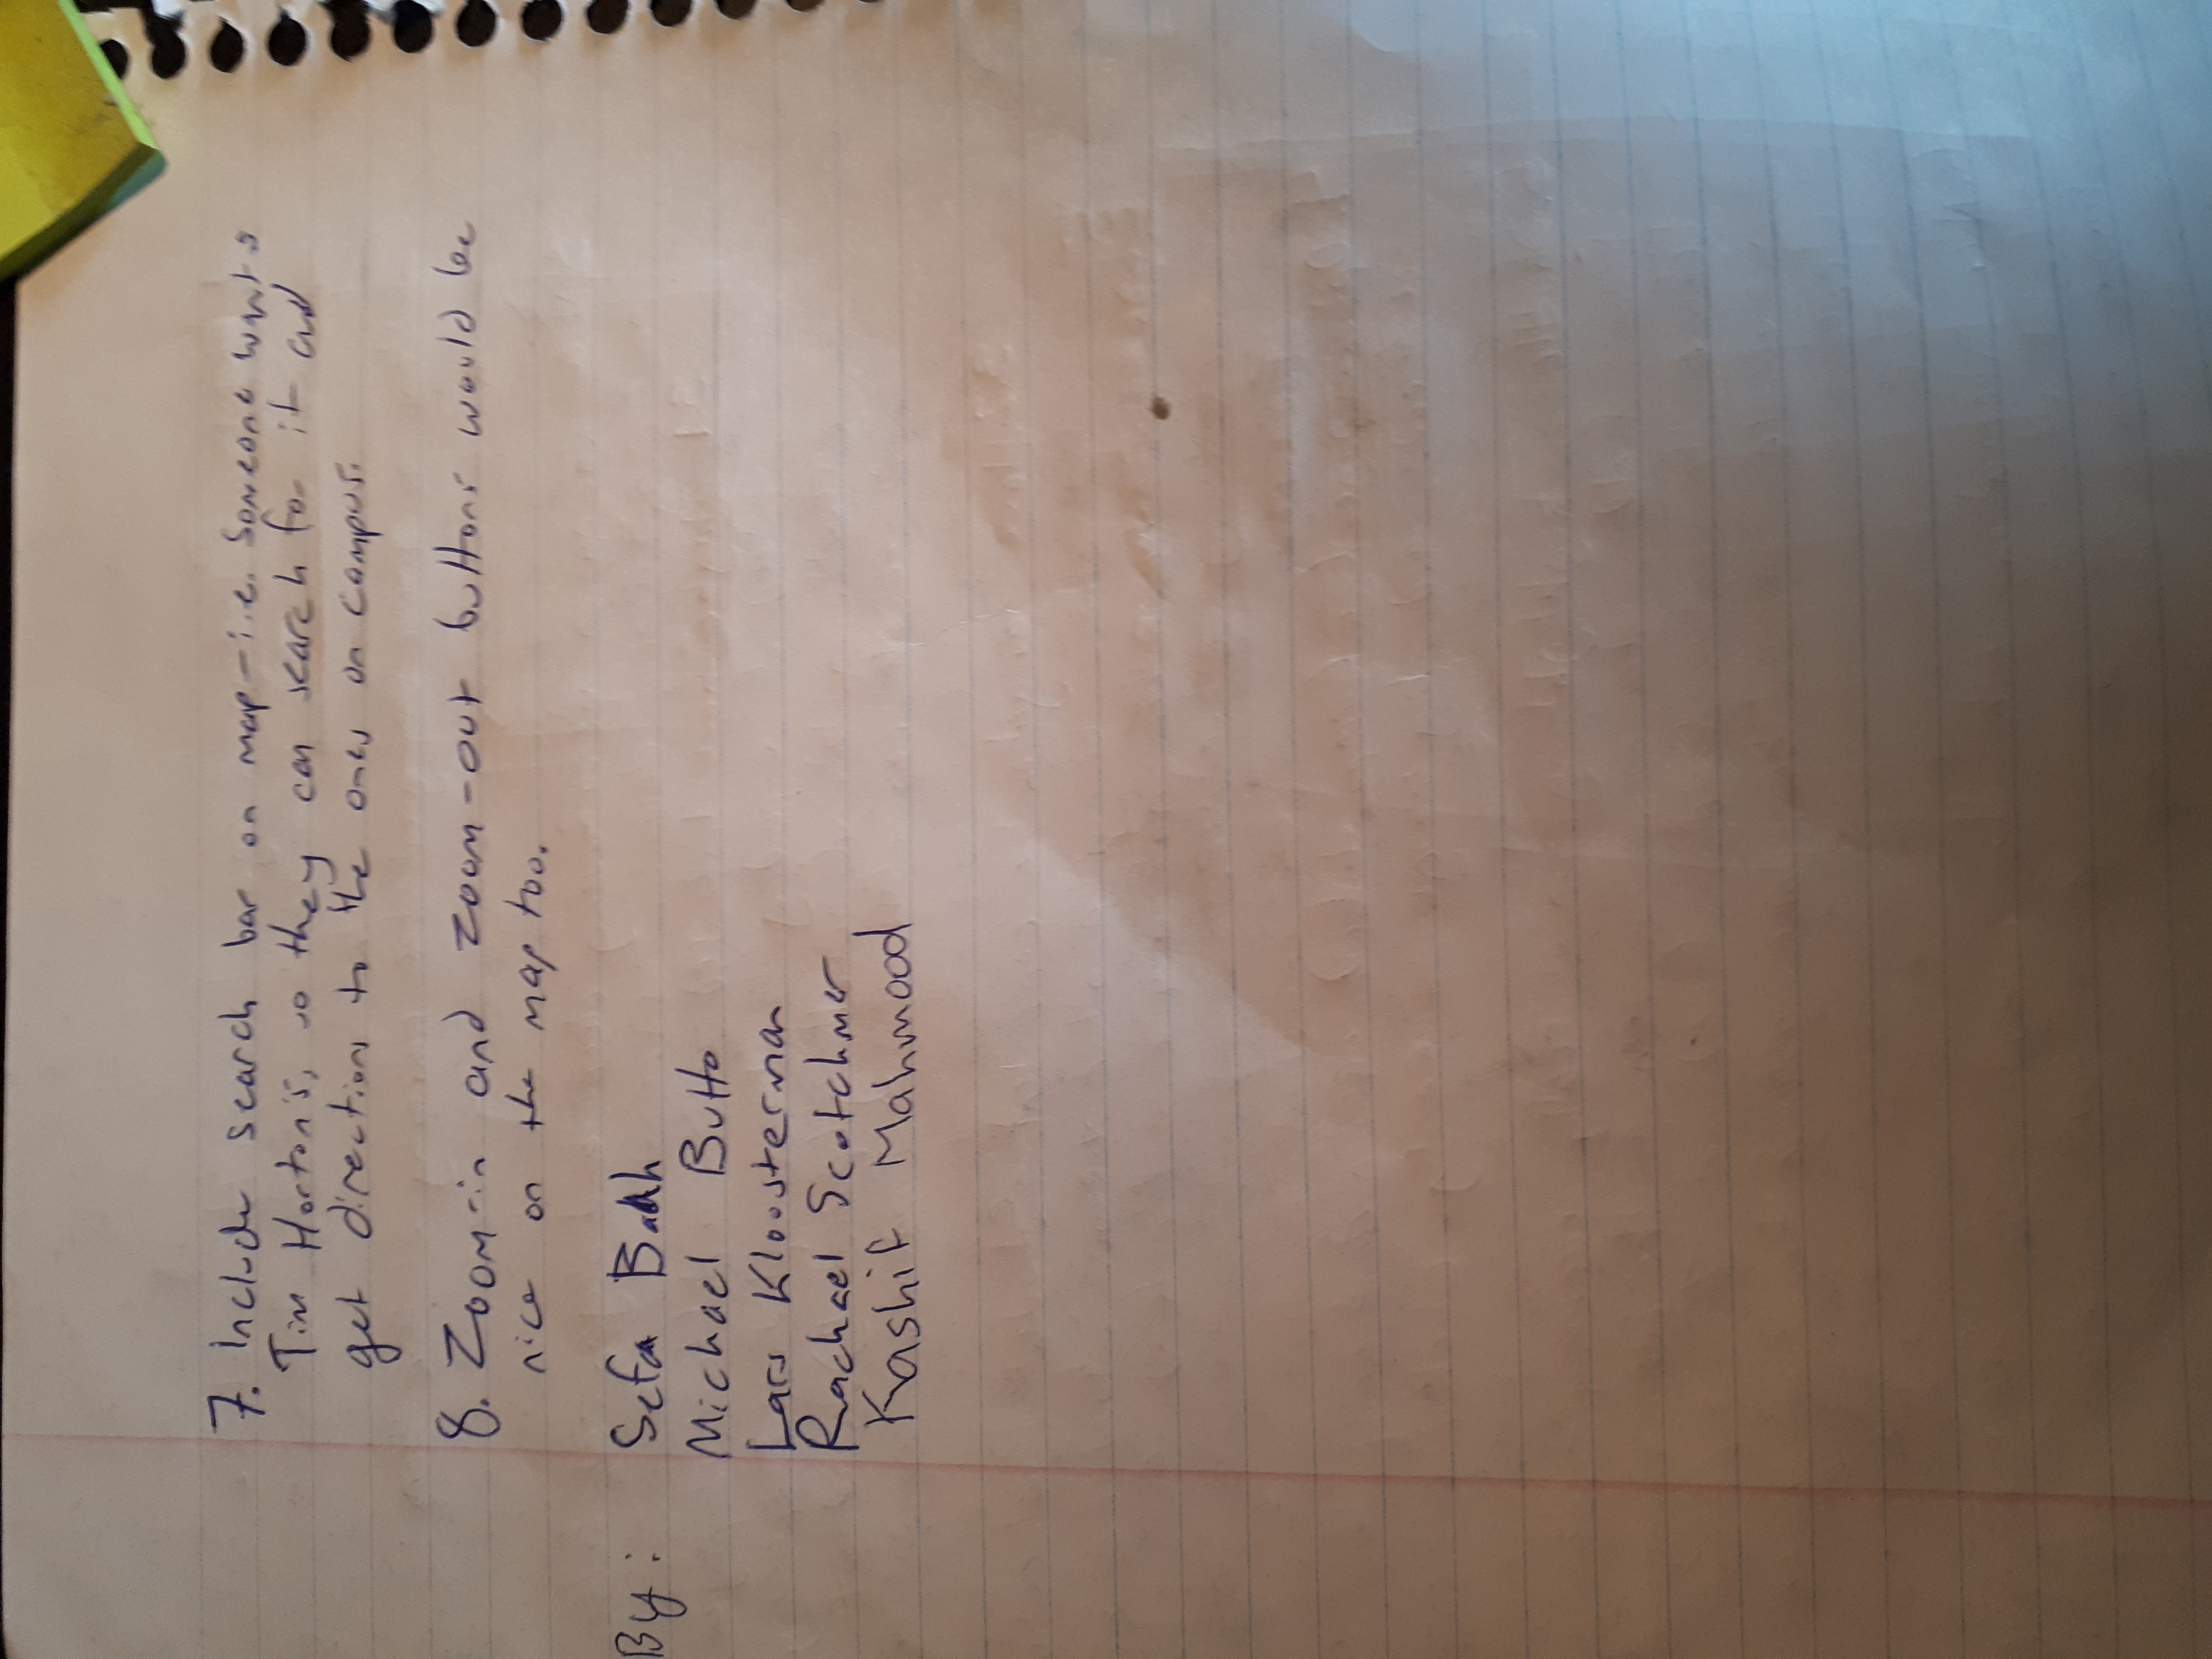 7. Include search bar on map - i.e. Someone wants
Tim Horton's, so they can search for it and
get directions to the ones on campus.
8. Zoom-in and zoom-out buttons would be
nice on the map too.
By: Sefa
Michael Butto
Lars Kloosterman
Rachael Scotchmer
Kashif Mahmood